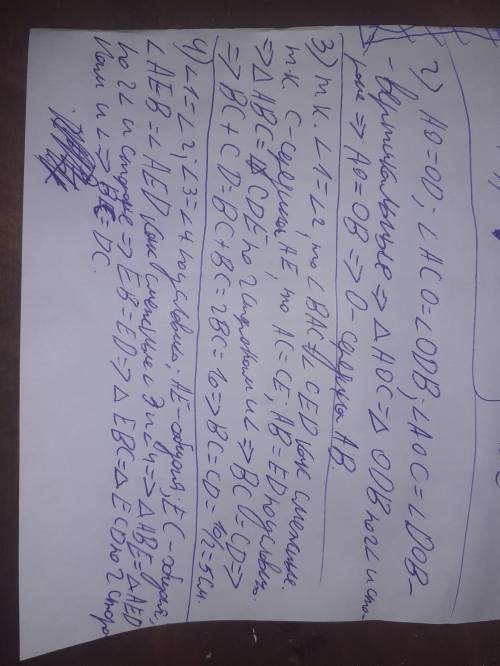 2) AO=OD; ∠ACO=∠ODB; ∠AOC=∠DOB-
-вертикальные => △AOC=△ODB по 2∠ и сто-
роне => AO=OB => O-середина AB.
3) т.к. ∠1=∠2, то ∠BAC=∠CED как смежные.
т.к. C-середина AE, то AC=CE; AB=ED по условию.
=> △ABC=△CDE по 2 сторонам и ∠ => BC=CD =>
=> BC+CD=BC+BC=2BC=10 => BC=CD=10/2=5см.
4) ∠1=∠2; ∠3=∠4 по условию; AE-общая; EC-общая;
∠AEB=∠AED как смежные с 3 и 4 => △ABE=△AED
по 2∠ и стороне => EB=ED => △EBC=△ECD по 2 сторо
нам и ∠ => BC=DC.